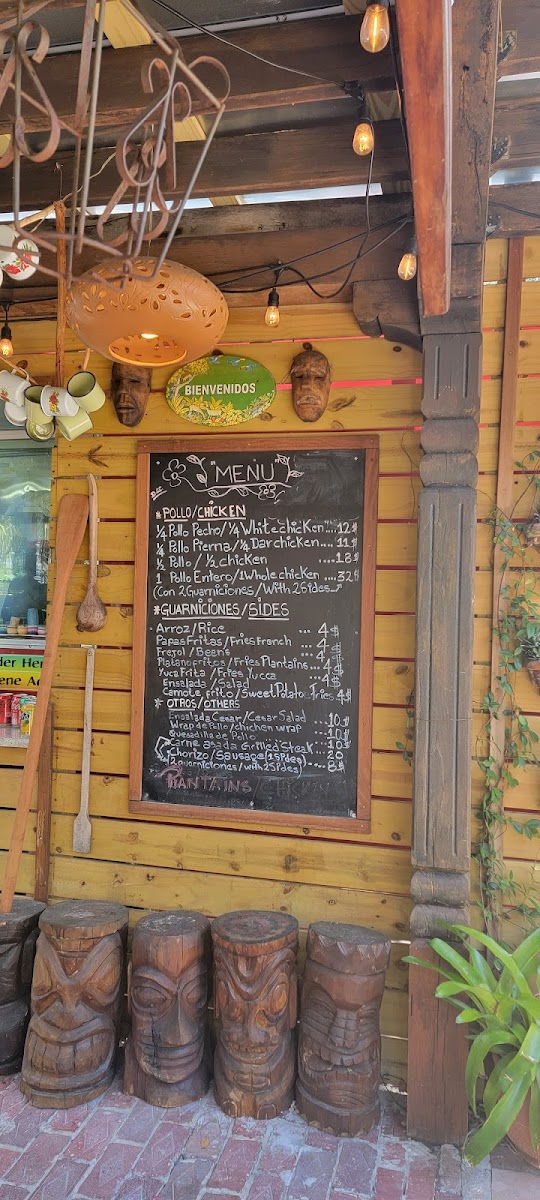 BIENVENIDOS
"MENU"
*POLLO/CHICKEN
1/4 Pollo Pecho/1/4 White chicken....12$
1/4 Pollo Pierna/1/4 Dar chicken.... 11$
1/2 Pollo / 1/2 chicken ....18$
1 Pollo Entero/1 Whole chicken ....32$
(Con 2 Guarniciones/With 2 Sides
*GUARNICIONES/SIDES
Arroz/Rice ... 4$
Papas Fritas/Fries French ... 4$
Frejol/Beans ... 4$
Platano fritos/Fries Plantains... 4$
Yuca Frita / Fries Yucca ... 4$
Ensalada / Salad 4$
Camote frito/Sweet Potato Fries 4$
* OTROS/OTHERS
Ensalada Cesar/Cesar Salad ...10$
Wrap de Pollo/chichen wrap ...10$
Quesadilla de Pollo ....10$
Carne asada Grilled Steak ... 20
Chorizo/Sausage (1 Sides) ---8$
(2 guarniciones/with 2 Sides)
PLANTAINS/
der Her
ene A